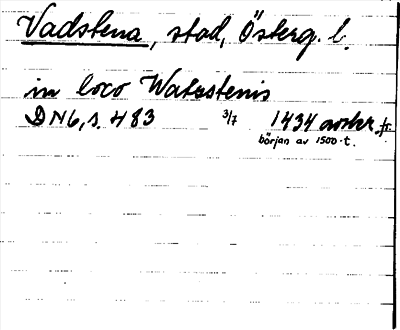 Vadstena, stad, Österg. l.
in loco Watzstenis
DN6, s. 483 3/7 1434 avskr. fr.
början av 1500-t.